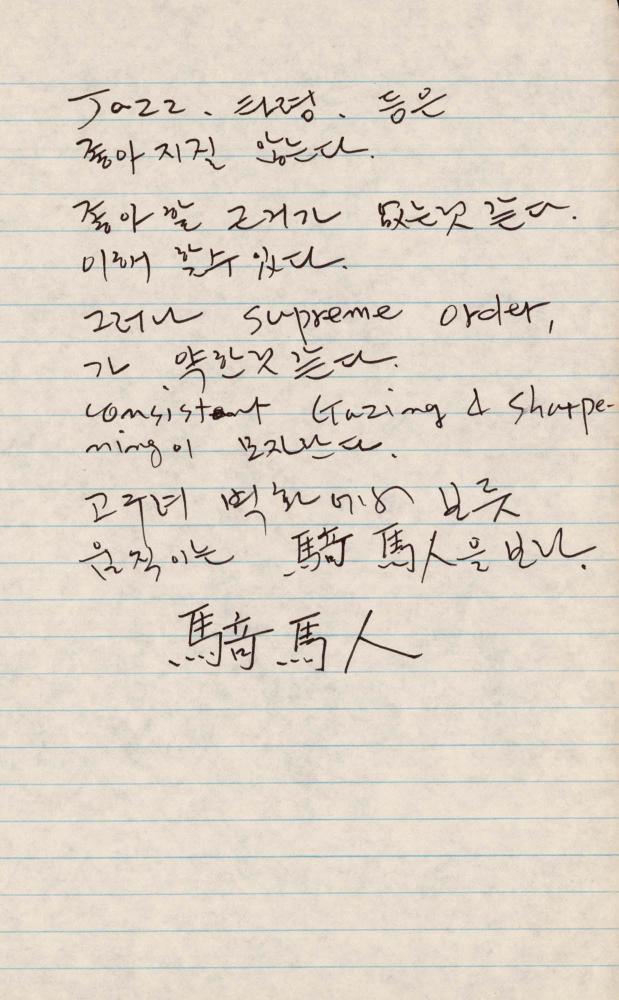 Jazz. 타령. 등은
좋아지질 않는다.
좋아할 근거가 없는것 같다.
이해 할수 있다.
그러나 supreme order,
가 약한것 같다.
consistent Gazing & Sharpe-
ning이 모자란다.
고구려 벽화에서 보듯
움직이는 騎馬人을 보라.
騎馬人